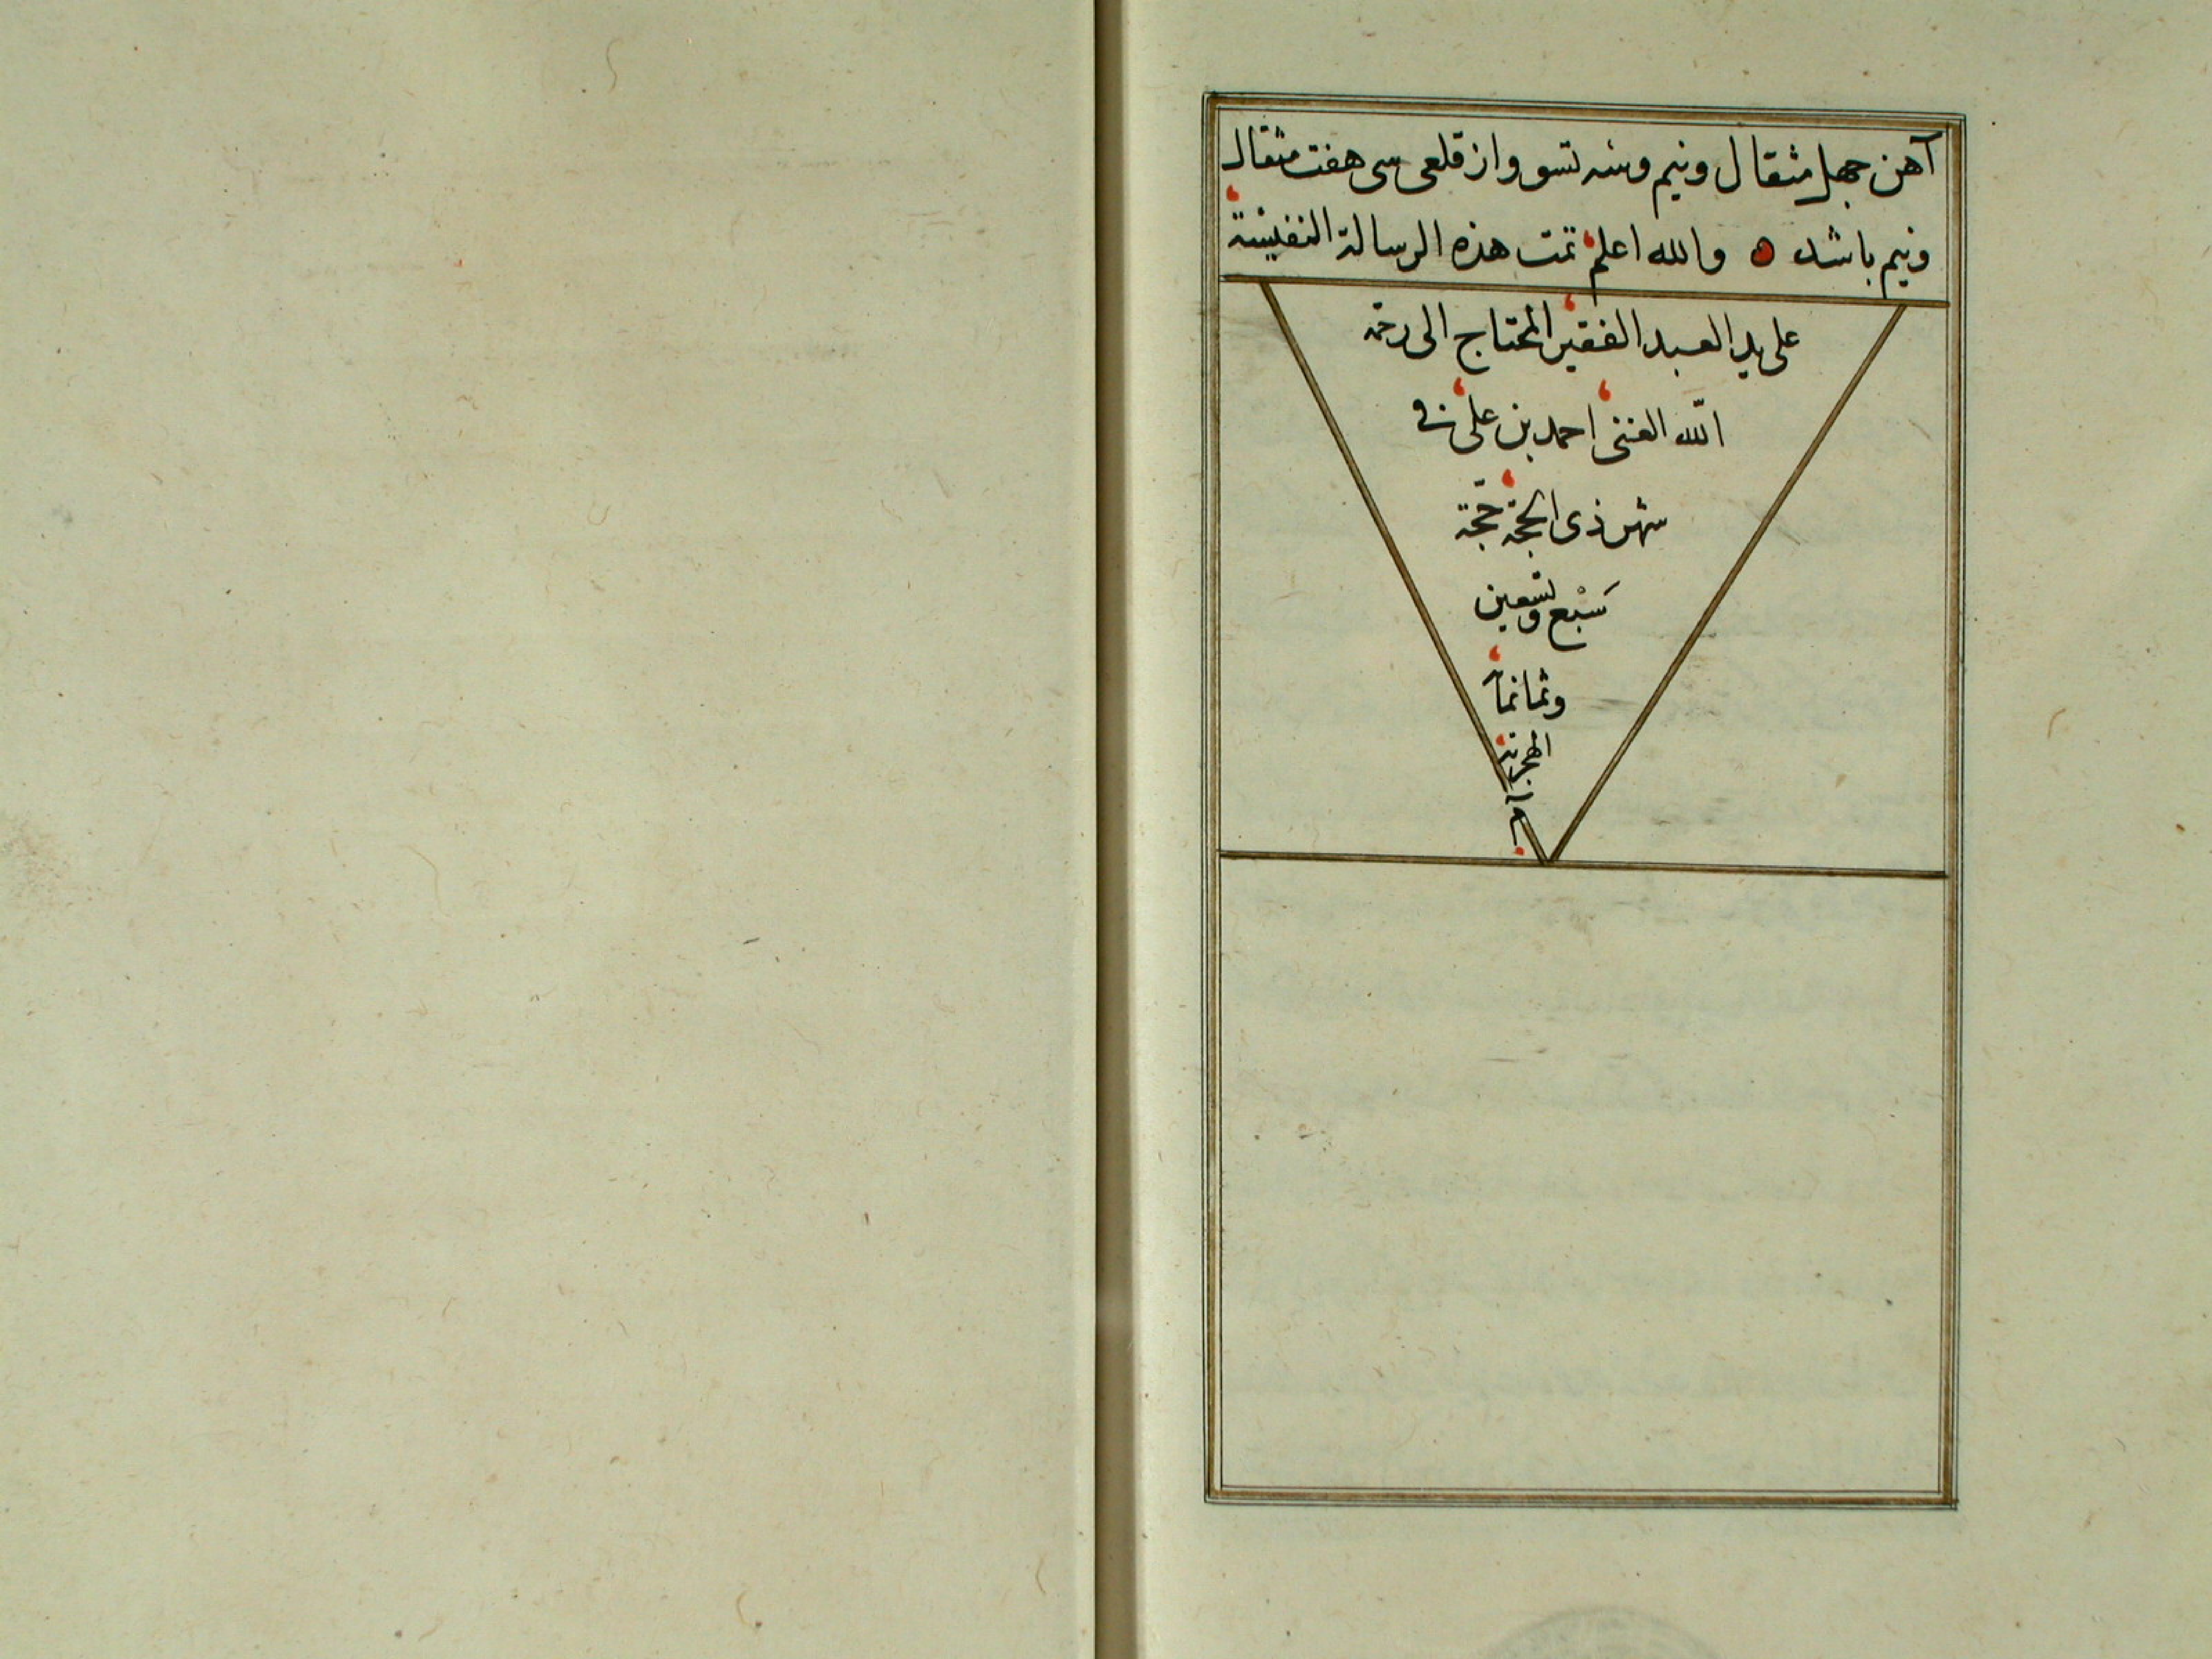 آهن جهل مثقال ونيم وسه تسو واز قلعى سى هفت مثقال
ونيم باشد ه والله اعلم تمت هذه الرسالة النفيسة
على يد العبد الفقير المحتاج الى رحمة
الله الغنى احمد بن على فى
شهر ذى الحجة حجة
سبع وتسعين
وثمانمأ
الهجرية